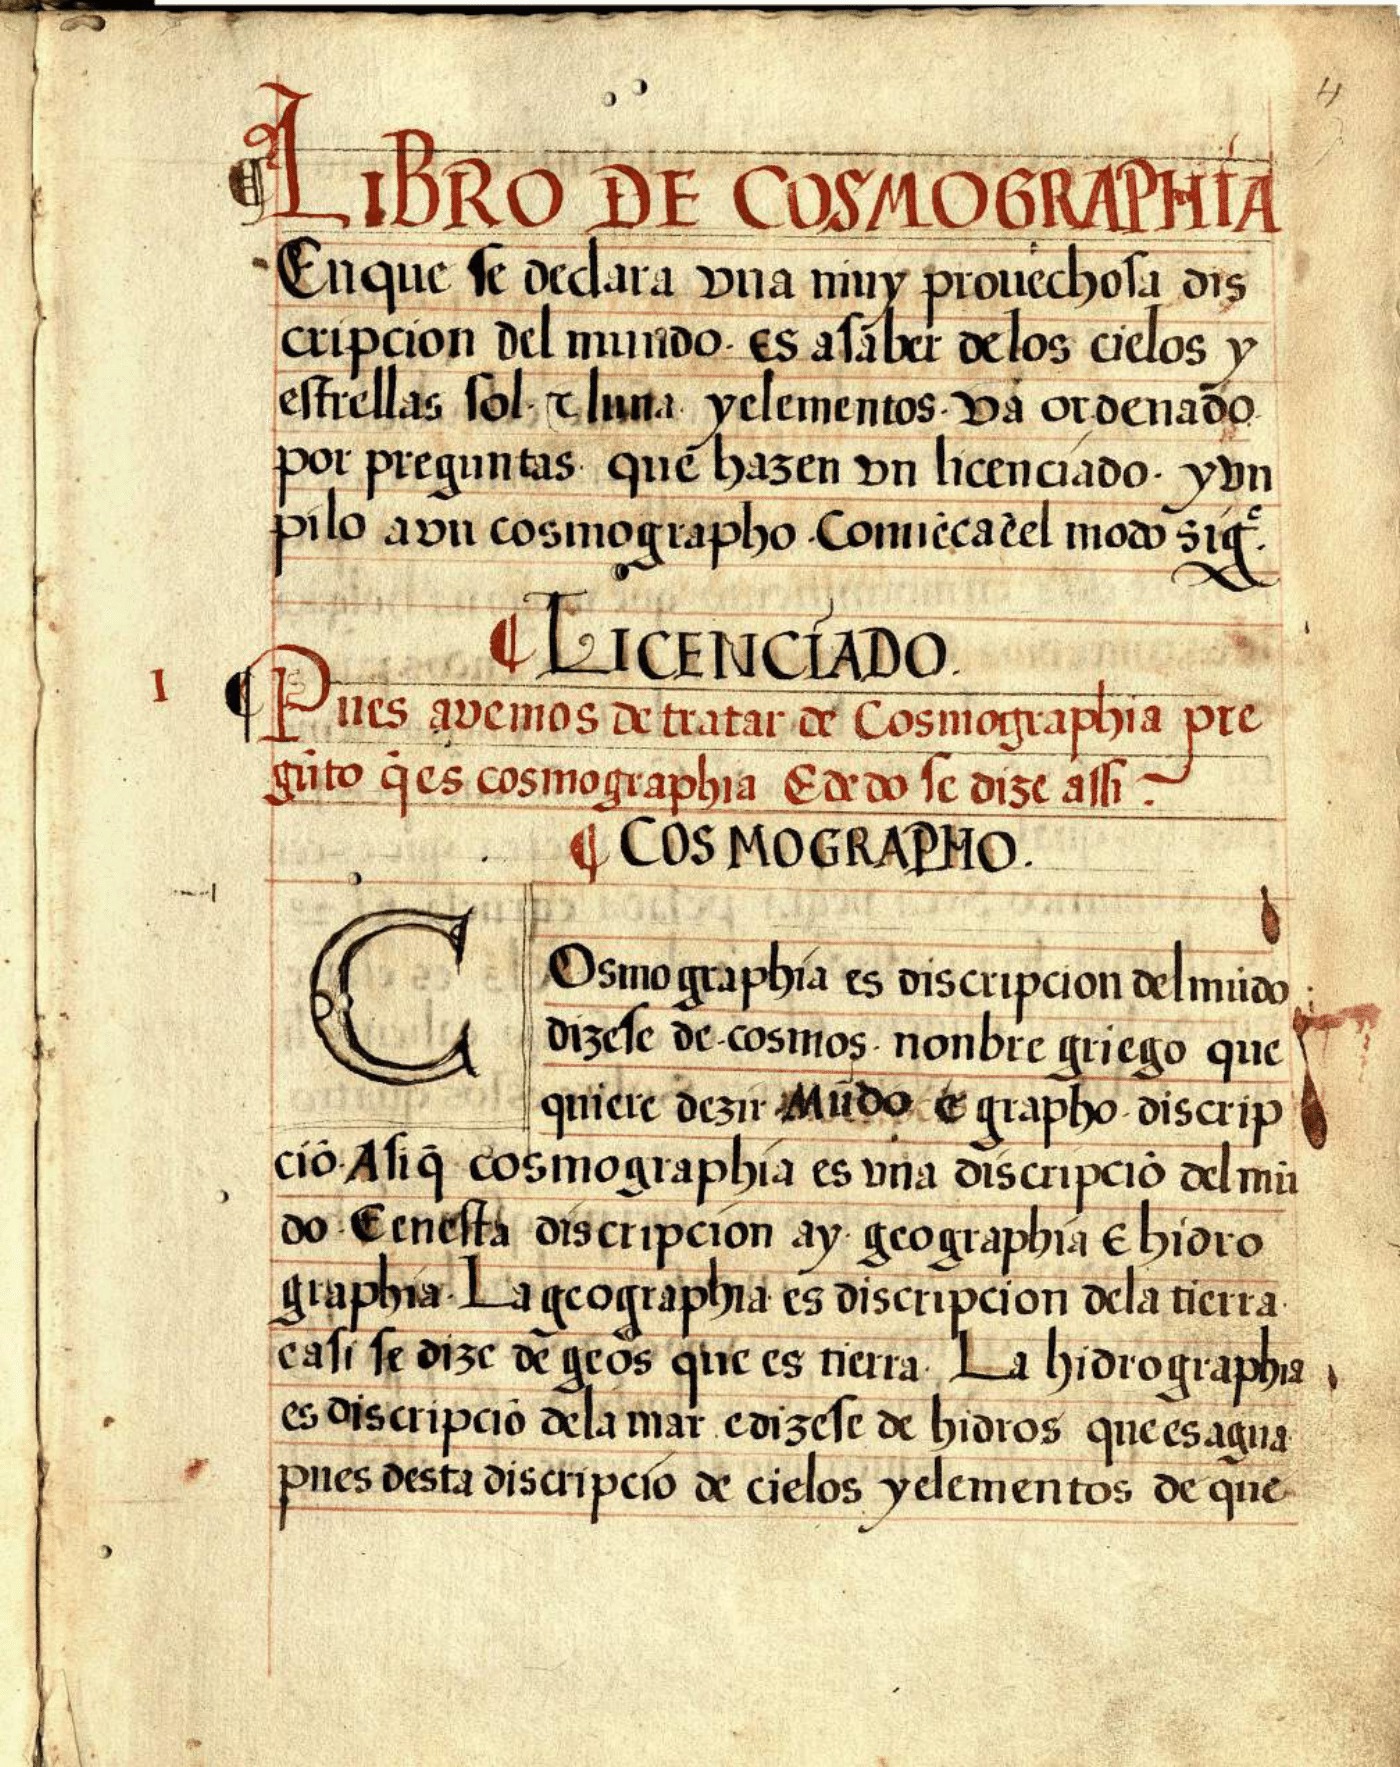 4
¶ LIBRO DE COSMOGRAPHÍA
Enque se declara vna muy prouechosa dis
cripcion del mundo. es asaber delos cielos y
estrellas sol. τ luna. yelementos. va ordenado
por preguntas. que hazen vn licenciado. yvn
pilo avn cosmographo. Comiēcaēel modo sigᵉ.
¶ LICENCIADO.
1 ¶ Pues avemos de tratar de Cosmographia pre
gūto q̄ es cosmographia E de do se dize assi?
¶ COSMOGRAPHO.
COsmographia es discripcion del mūdo
dizese de cosmos. nonbre griego que
quiere dezir Mūdo e grapho. discrip
ciō. Asi q̄ cosmographia es vna discripciō del mū
do. E enesta discripcion ay. geographia E hidro
graphia. La geographia es discripcion dela tierra.
e asi se dize de geos que es tierra. La hidrographia
es discripciō dela mar e dizese de hidros que es agua
pues desta discripciō de cielos yelementos de que